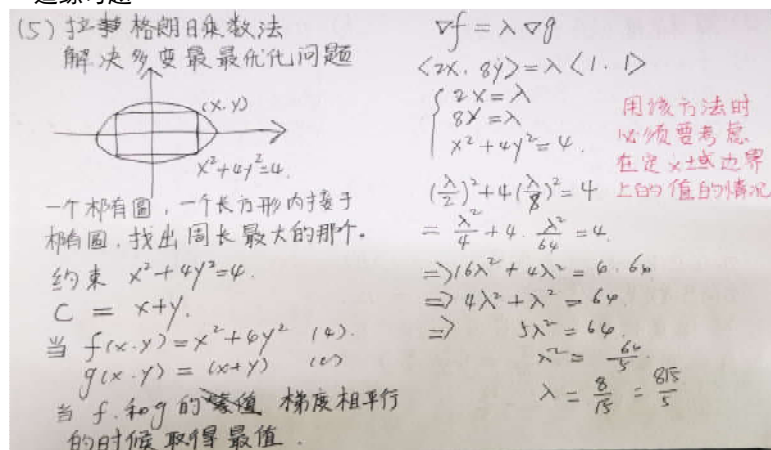 (5) 拉格朗日乘数法
解决多变最最优化问题
(x.y)
x²+4y²=4.
一个椭圆,一个长方形内接于
椭圆,找出周长最大的那个.
约束 x²+4y²=4.
C = x+y.
当 f(x.y)=x²+4y² (4).
g(x.y) = (x+y) (c)
当 f.和g的 梯度相平行
的时候取得最值.
∇f=λ∇g
<2x, 8y>=λ<1.1>
2x=λ
8y=λ
x²+4y²=4.
(λ/2)²+4(λ/8)²=4
= λ²/4+4.λ²/64=4.
=>16λ²+4λ²=4.64
=> 4λ²+λ²=64.
=> 5λ²=64
λ²=64/5.
λ=8/√5=8√5/5
用该方法时
必须要考虑
在定义域边界
上的值的情况